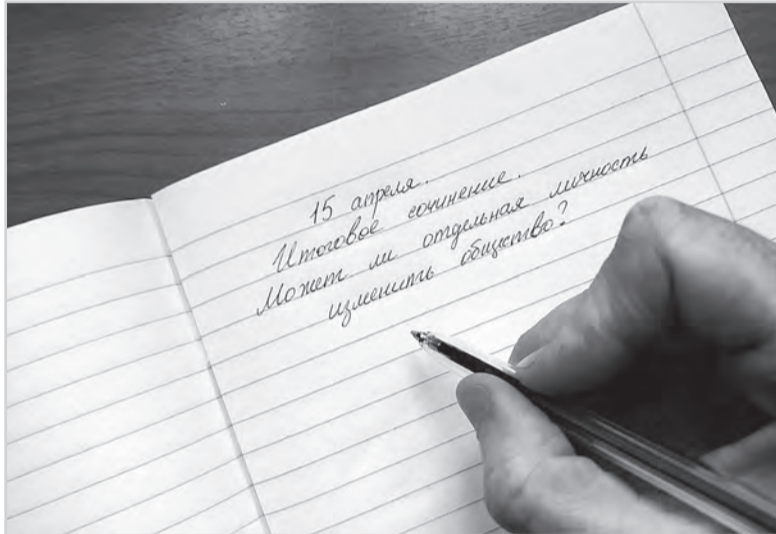 15 апреля.
Итоговое сочинение.
Может ли отдельная личность
изменить общество?